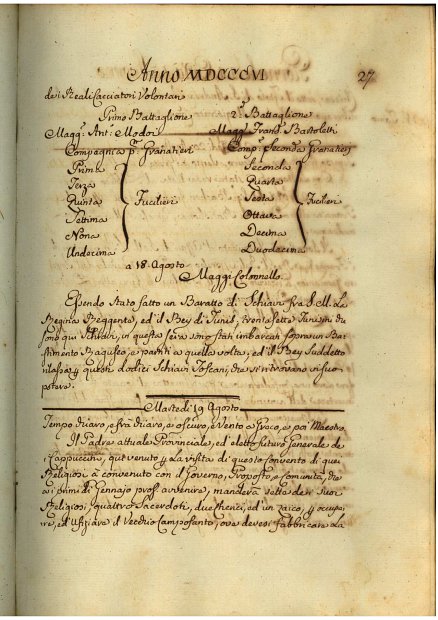 Anno MDCCCVI 27
dei Reali Cacciatori Volontari
Primo Battaglione 2º Battaglione
Magg: Ant: Modoi Magg: Frans: Bartoletti
Compagnia pr Granatieri Comp: Seconda Granatieri
Prima Seconda
Terza Quarta
Quinta Fucilieri Sesta Fucilieri
Settima Ottava
Nona Decima
Undecima Duodecima
a 18 Agosto
Maggi Colonnello
Essendo stato fatto un Baratto di Schiavi fra S. M. La
Regina Reggente, ed il Bey di Tunis, trentasette Tunisini du
sono qui Schiavi, in questa sera sono stati imbarcati sopra un Bas
timento Raguseo, e partiti a quella volta; ed il Bey Suddetto
rilascia questi dodici Schiavi Toscani, che si ritrovano in suo
potere.
Martedi 19 Agosto
Tempo chiaro, e fra chiaro, e oscuro, e Vento a Greco, e poi Maestro
Il Padre attuale Provinciale, ed eletto futuro Generale de
Cappuccini, qui venuto alla visita di questo Convento di quei
Religiosi à convenuto con il Governo, Proposto, e Comunità, che
ai primi di Gennajo pros. avvenire, manderà sette dei suoi
Religiosi, quattro Sacerdoti, due Cherici, ed un Laico, occupa
re, ed Ufiziare il Vecchio Camposanto, ove devesi fabbricare La